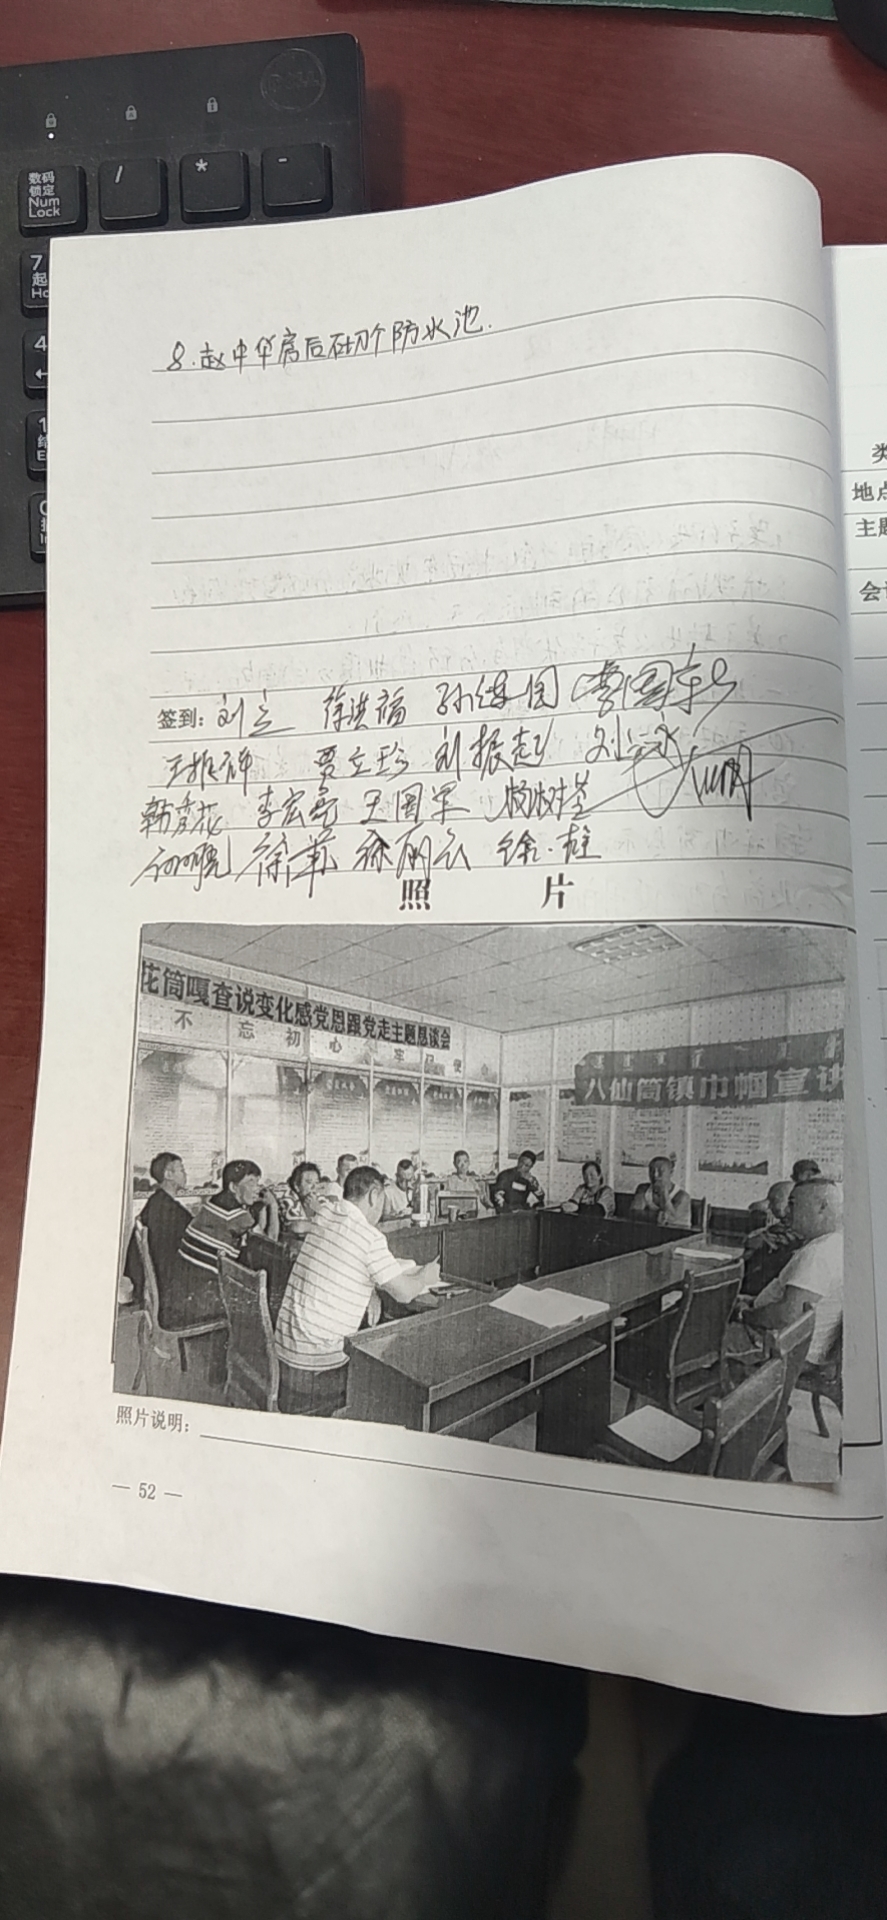 数码
锁定
Num
Lock
/
*
-
7
起
4
1
8.赵中华房后砌个防水池.
类
地点
主题
会议
签到: 刘立 徐洪福
王振祥 贾立珍 刘振起 刘永
韩彦花 李宏亮 王国军 杨树
徐军 徐丽云 徐雄
照 片
花筒嘎查说变化感党恩跟党走主题恳谈会
不忘初心 牢记使
八仙筒镇巾帼宣讲
照片说明:
— 52 —